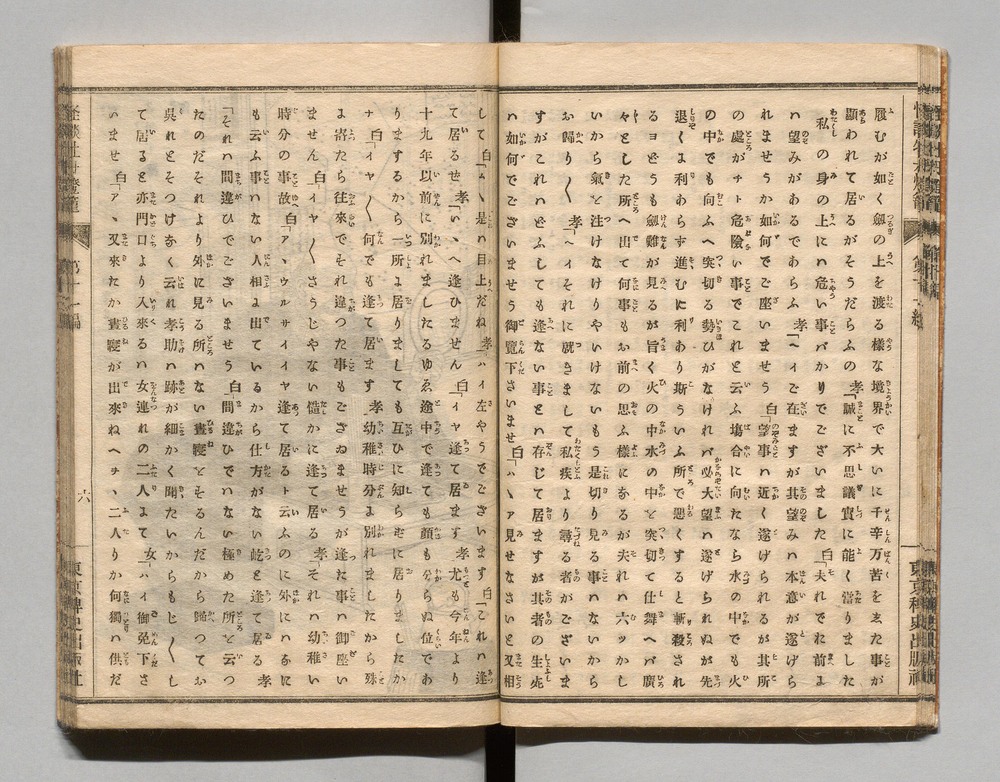 履むが如く劔の上を渡る樣な境界で大いに千辛万苦をゑた事が
顯われて居るがそうだらふの 孝「誠に不思議實に能く當りました
私しの身の上にハ危い事バかりでございました 白「夫れでね前よ
ハ望みがあるであらふ 孝「ヘイござ在ますが其望みハ本意が遂げら
れませうか如何でご座いませう 白「望事ハ近く遂げられるが其所
の處がチト危險い事でこれと云ふ塲合に向たなら水の中でも火
の中でも向ふへ突切る勢ひがなけれバ必大望ハ遂げられぬが先
退くよ利あらず進むに利あり斯ういふ所で悪くすると斬殺され
るヨどうも劔難が見るが旨く火の中水の中を突切て仕舞へバ廣
々とした所へ出て何事もお前の思ふ樣になるが夫れハ六ッかし
いから氣を注けなけりやいけないもう是切り見る事ハないから
お歸り〱 孝「ヘイそれに就きまして私疾より尋る者がございま
すがこれハどふしても逢ない事とハ存じて居ますが其者の生死
ハ如何でございませう御覽下さいませ 白「ハヽア見せなさいと又相
して 白「ハヽ是ハ目上だね 孝「ハイ左やうでございます 白「これハ逢
て居るぜ 孝「いヽへ逢ひません 白「イヤ逢て居ます 孝「尤も今年より
十九年以前に別れましたるゆゑ途中で逢ても顔も分らぬ位であ
りまするから一所よ居りましても互ひに知らせに居りましたか
ナ 白「イヤ〱何でも逢て居ます 孝「幼稚時分よ別れましたから殊
よ寄たら往來でそれ違つた事もござゐませうが逢た事ハ御座い
ません 白「イヤ〱さうじやない慥かに逢て居る 孝「それハ幼稚い
時分の事故 白「アヽウルサイイヤ逢て居るト云ふのに外にハなに
も云ふ事ハない人相よ出ているから仕方がない屹と逢て居る 孝
「それハ間違ひでございませう 白「間違ひでハない極めた所を云つ
たのだそれより外に見る所ハない晝寝をそるんだから歸つてお
呉れとそつけなく云れ孝助ハ跡が細かく聞たいからもじ〱し
て居ると亦門口より入來るハ女連れの二人よて 女「ハイ御免下さ
いませ 白「アヽ又來たか晝寝が出來ねへナヽ二人りか何獨ハ供だ
六